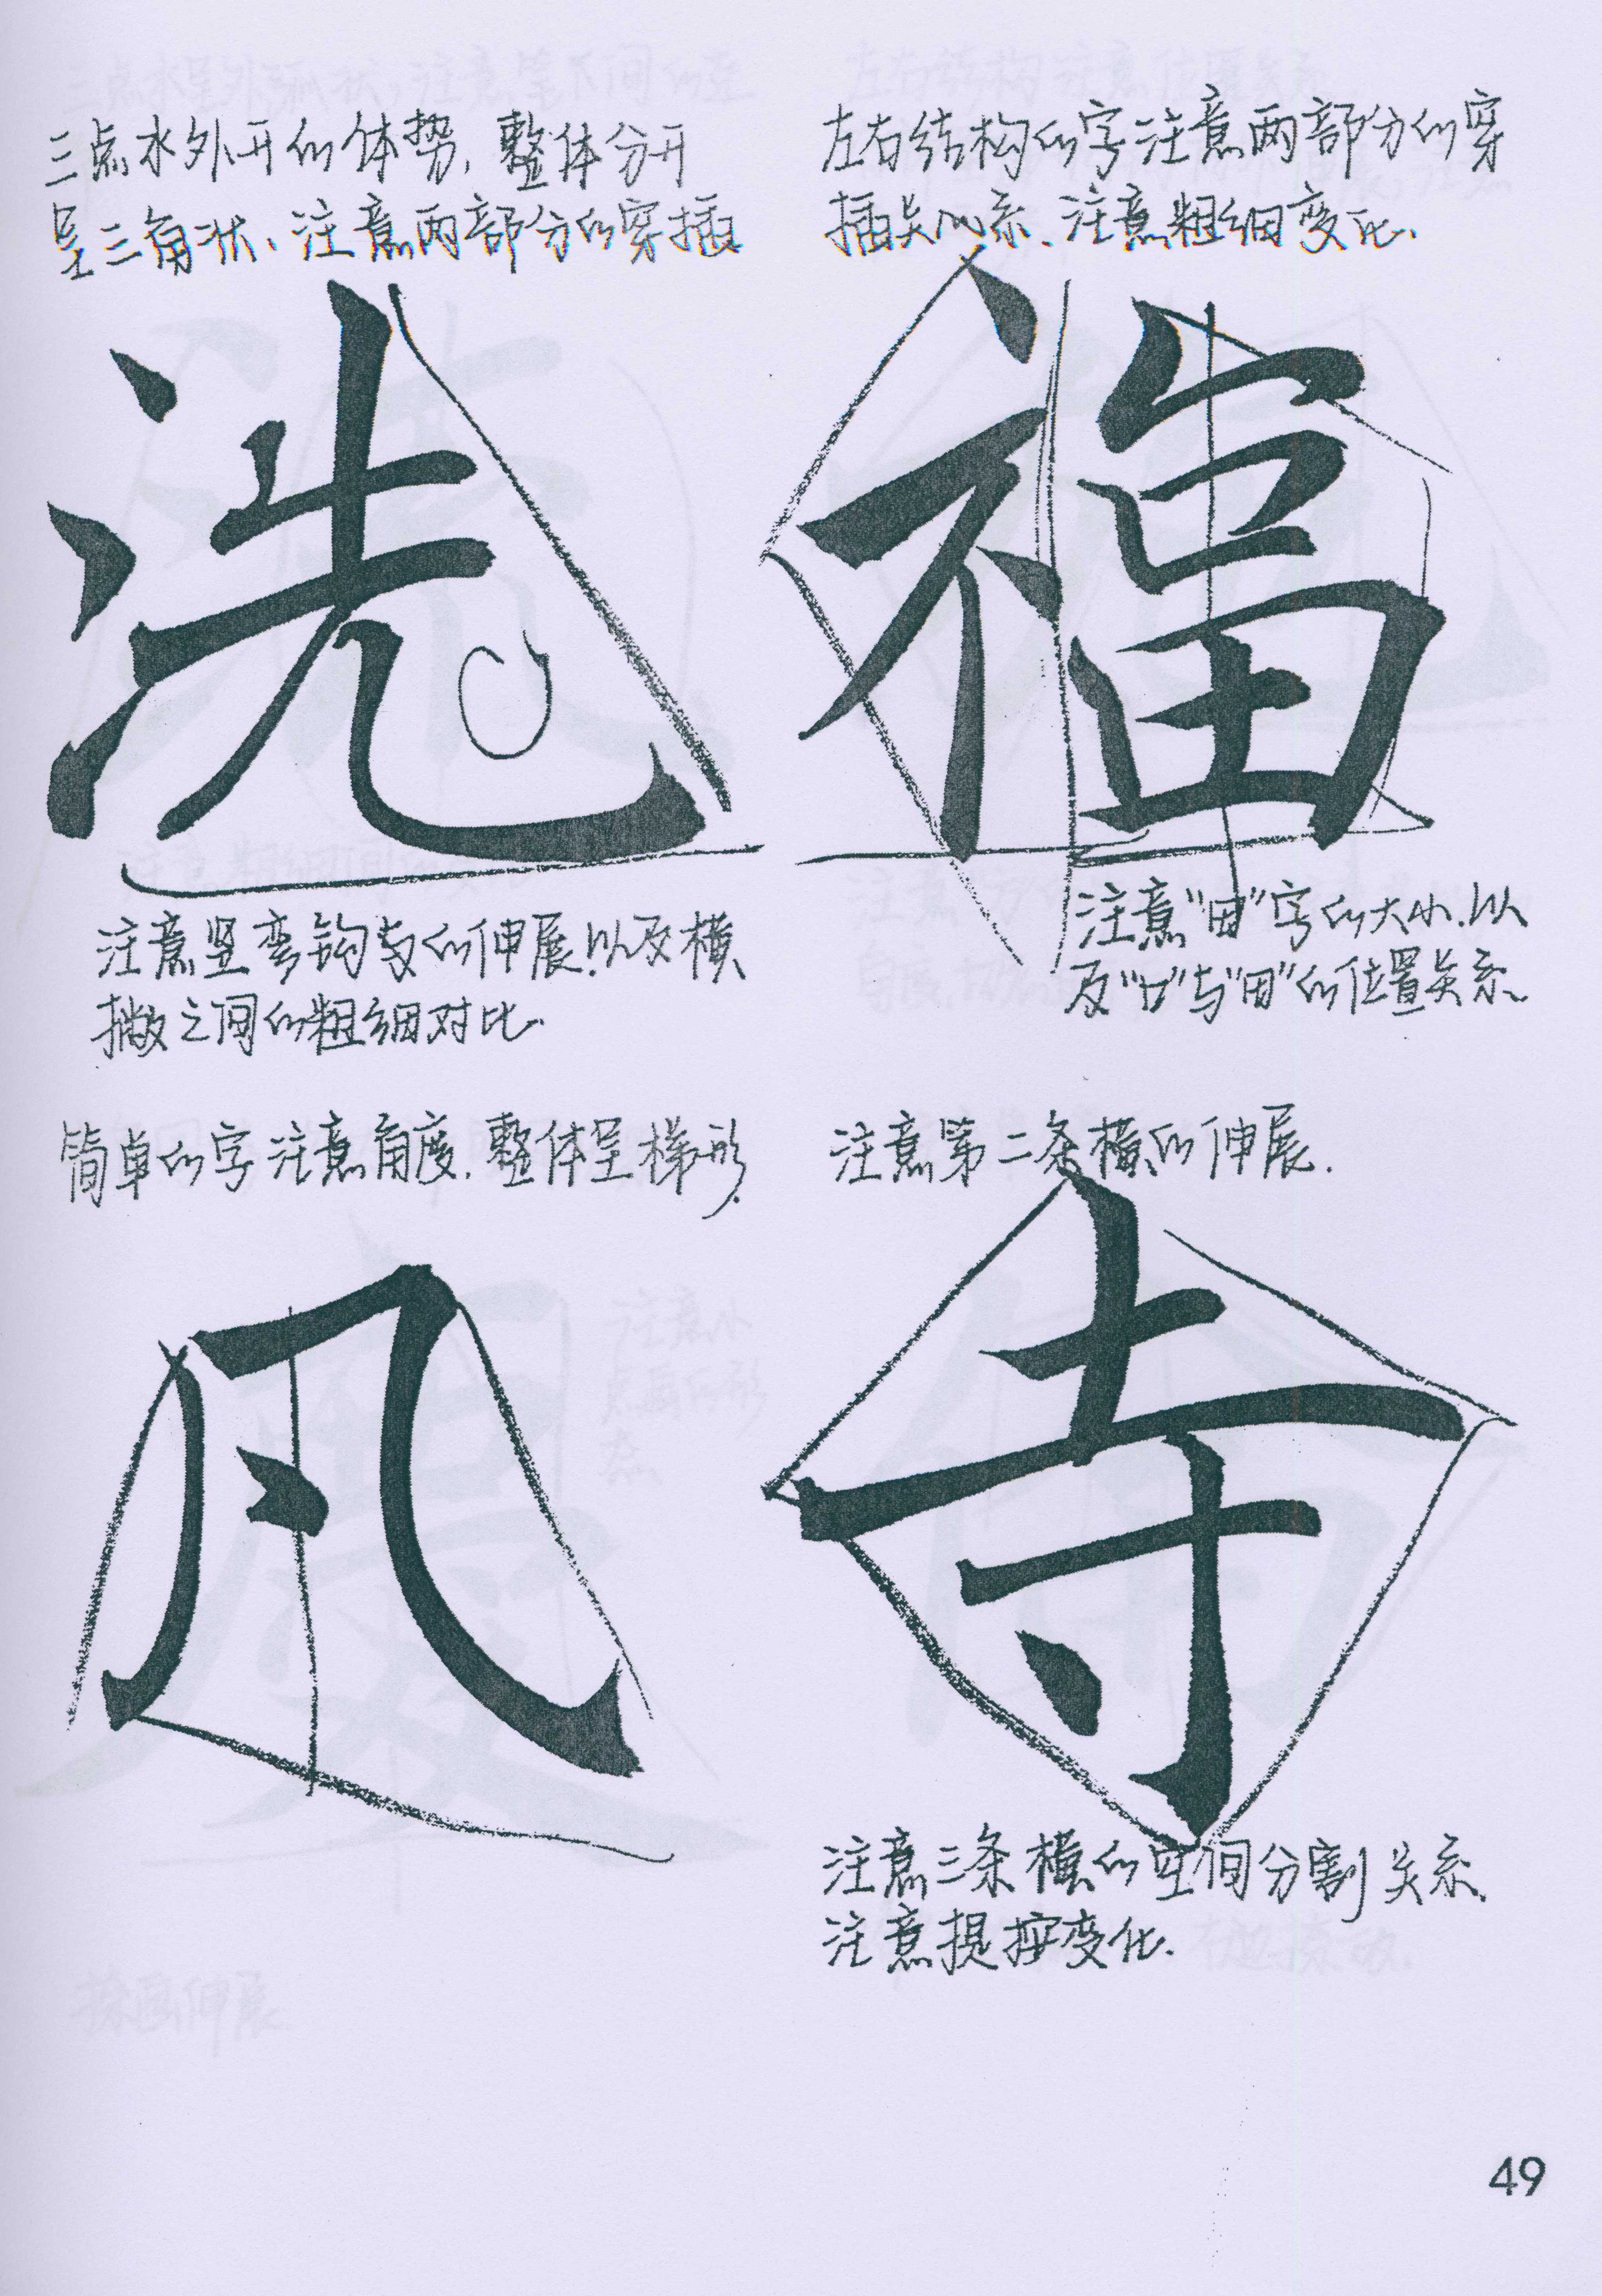 三点水外开的体势，整体分开
呈三角状、注意两部分的穿插
洗
注意竖弯钩的伸展！以及横
撇之间的粗细对比.
左右结构的字注意两部分的穿
插关系、注意粗细变化.
福
注意“田”字的大小.以
及“口”与“田”的位置关系
简单的字注意角度.整体呈梯形.
凡
注意第二条横的伸展.
寺
注意三条横的空间分割关系
注意提按变化.
49